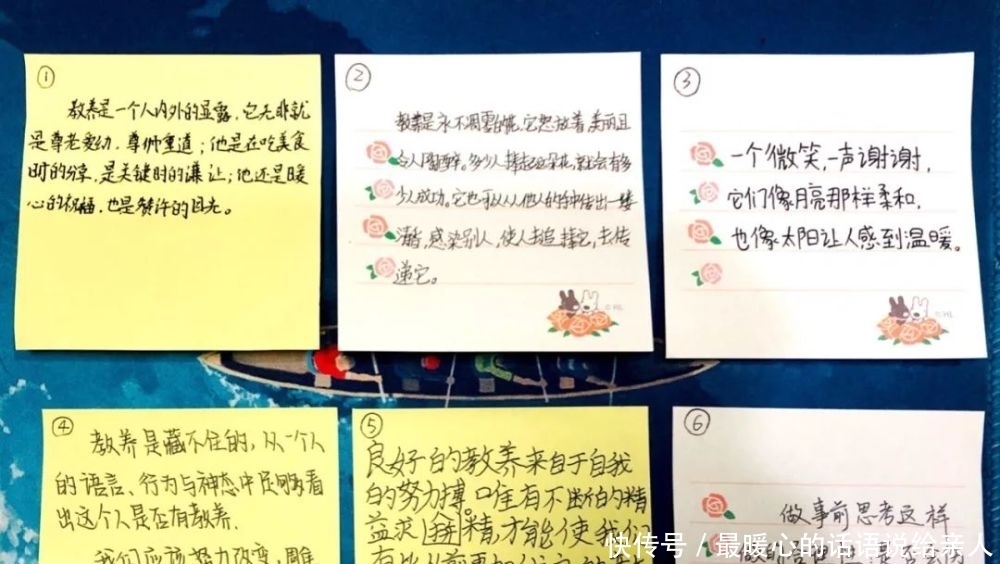 ①
教养是一个人内外的显露，它无非就
是尊老爱幼，尊师重道；他是在吃美食
时的分享，是关键时的谦让；他还是暖
心的祝福，也是赞许的目光。
②
教养是永不凋零的花，它怒放着，美丽且
令人陶醉。多少人捧起这朵花，就会有多
少人成功。它也可以从他人的手中传出一缕
清香，感染别人，使人去追捧它，去传
递它。
③
一个微笑，一声谢谢，
它们像月亮那样柔和，
也像太阳让人感到温暖。
④
教养是藏不住的，从一个人
的语言、行为与神态中足够看
出这个人是否有教养。
我们应该努力改变，
⑤
良好的教养来自于自我
的努力搏。唯有不断的精
益求精，才能使我们
⑥
做事前思考这样
快传号 / 最暖心的话语说给亲人